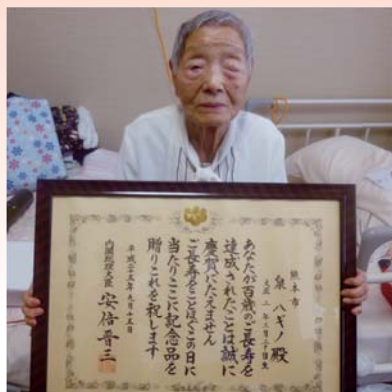 熊本市
泉 八ギノ 殿
大正 二 年 三 月 三十 日生
あなたが百歳のご長寿を
達成されたことは誠に
慶賀にたえません
ご長寿をことほぐこの日に
当たりここに記念品を
贈りこれを祝します
平成二十五年九月十五日
内閣総理大臣 安倍晋三